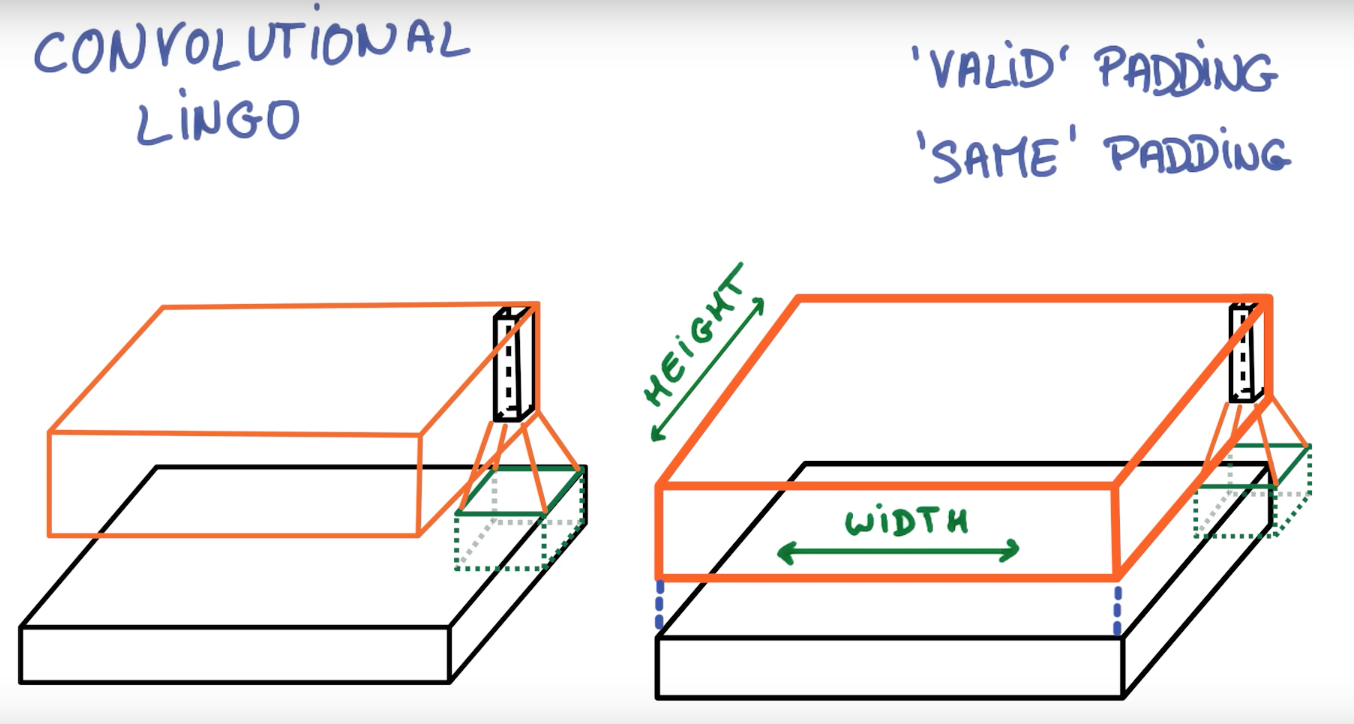 CONVOLUTIONAL
LINGO
'VALID' PADDING
'SAME' PADDING
HEIGHT
WIDTH